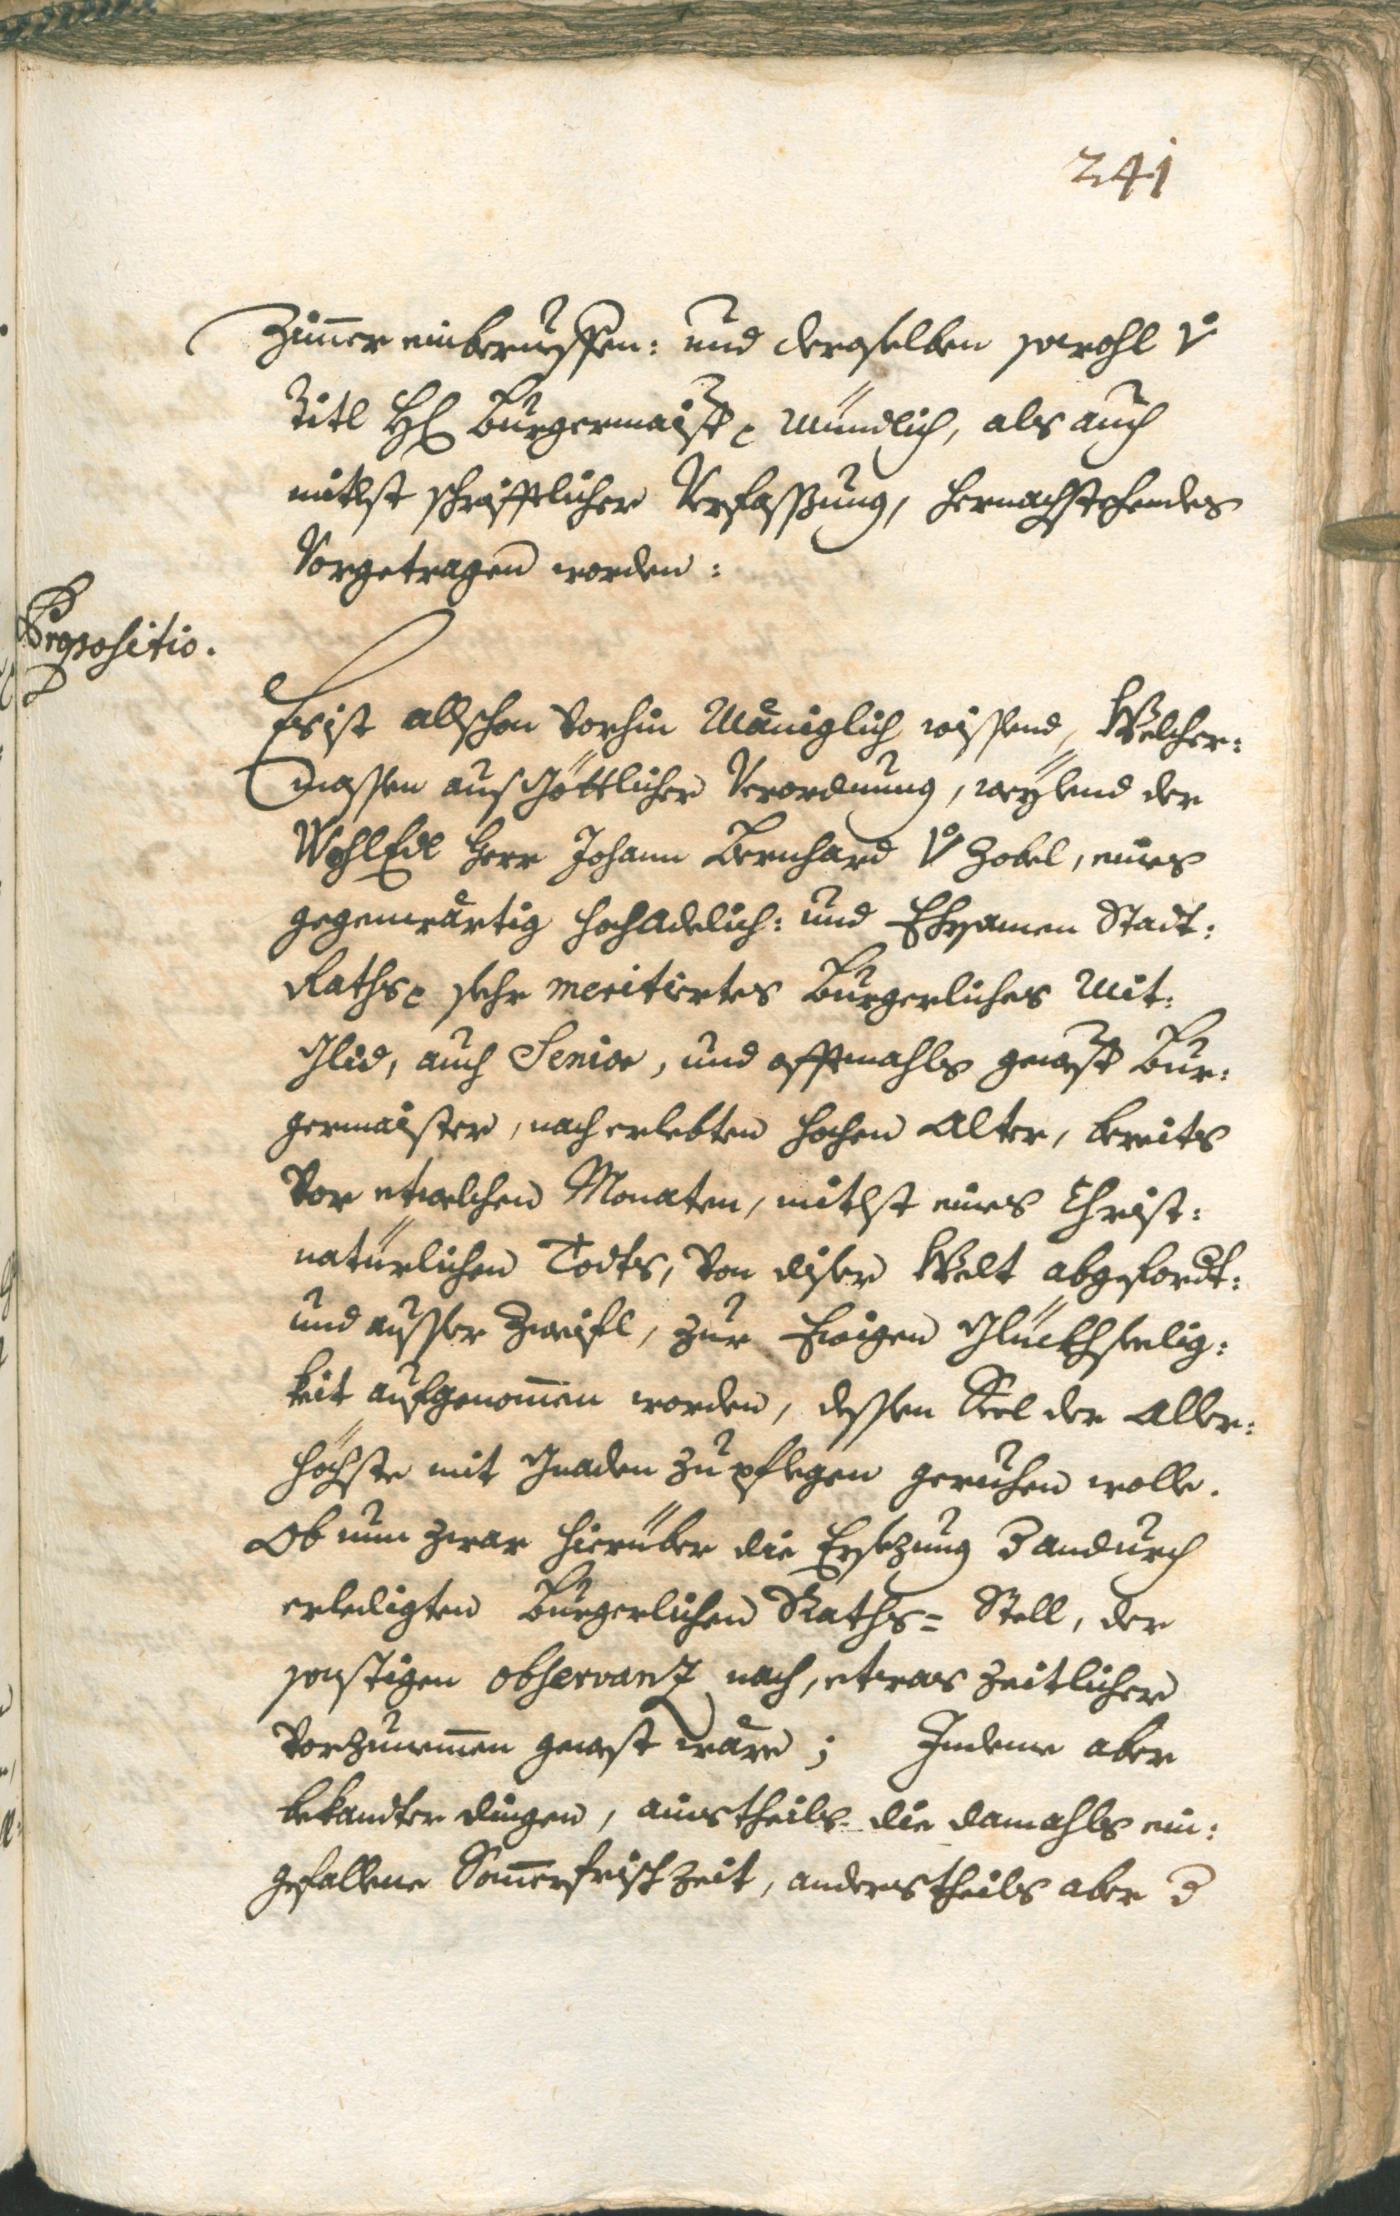 241
Zimer einberueffen: und deroselben sowohl v
Titl H Burgermaist. mündlich, als auch
mitlst schrifftlicher Verfassung, hernachstehendes
Vorgetragen worden:
Propositio.
Es ist allschon vorhin Mäniglich wissend, Welcher:
massen aus Göttlicher Verordnung, weylend der
WohlEdl Herr Johann Bernhard v Zobel, eines
gegenwärtig HochAdelich: und Ehrsamen Stadt:
Raths sehr meritiertes Burgerliches Mit:
Glid, auch Senior, und offtmahls gewest Bur:
germaister, nach erlebten hochen Alter, bereits
vor etwelchen Monaten, mitlst eines Christ:
natürlichen Todts, von diser Welt abgefordt:
und ausser Zweifl, zur Ewigen Glückhseelig:
keit aufgenomen worden, dessen Seel der Aller:
höchste mit Gnaden zu pflegen geruhen wolle.
Ob nun zwar hierüber die Ersezung d andurch
erledigten Burgerlichen Raths= Stell, der
sonstigen observanz nach, etwas zeitlicher
vorzunemen gewest wäre; Indeme aber
bekandter dingen, ainstheils die damahls ein:
gefallene Somerfrisch Zeit, anderstheils aber d